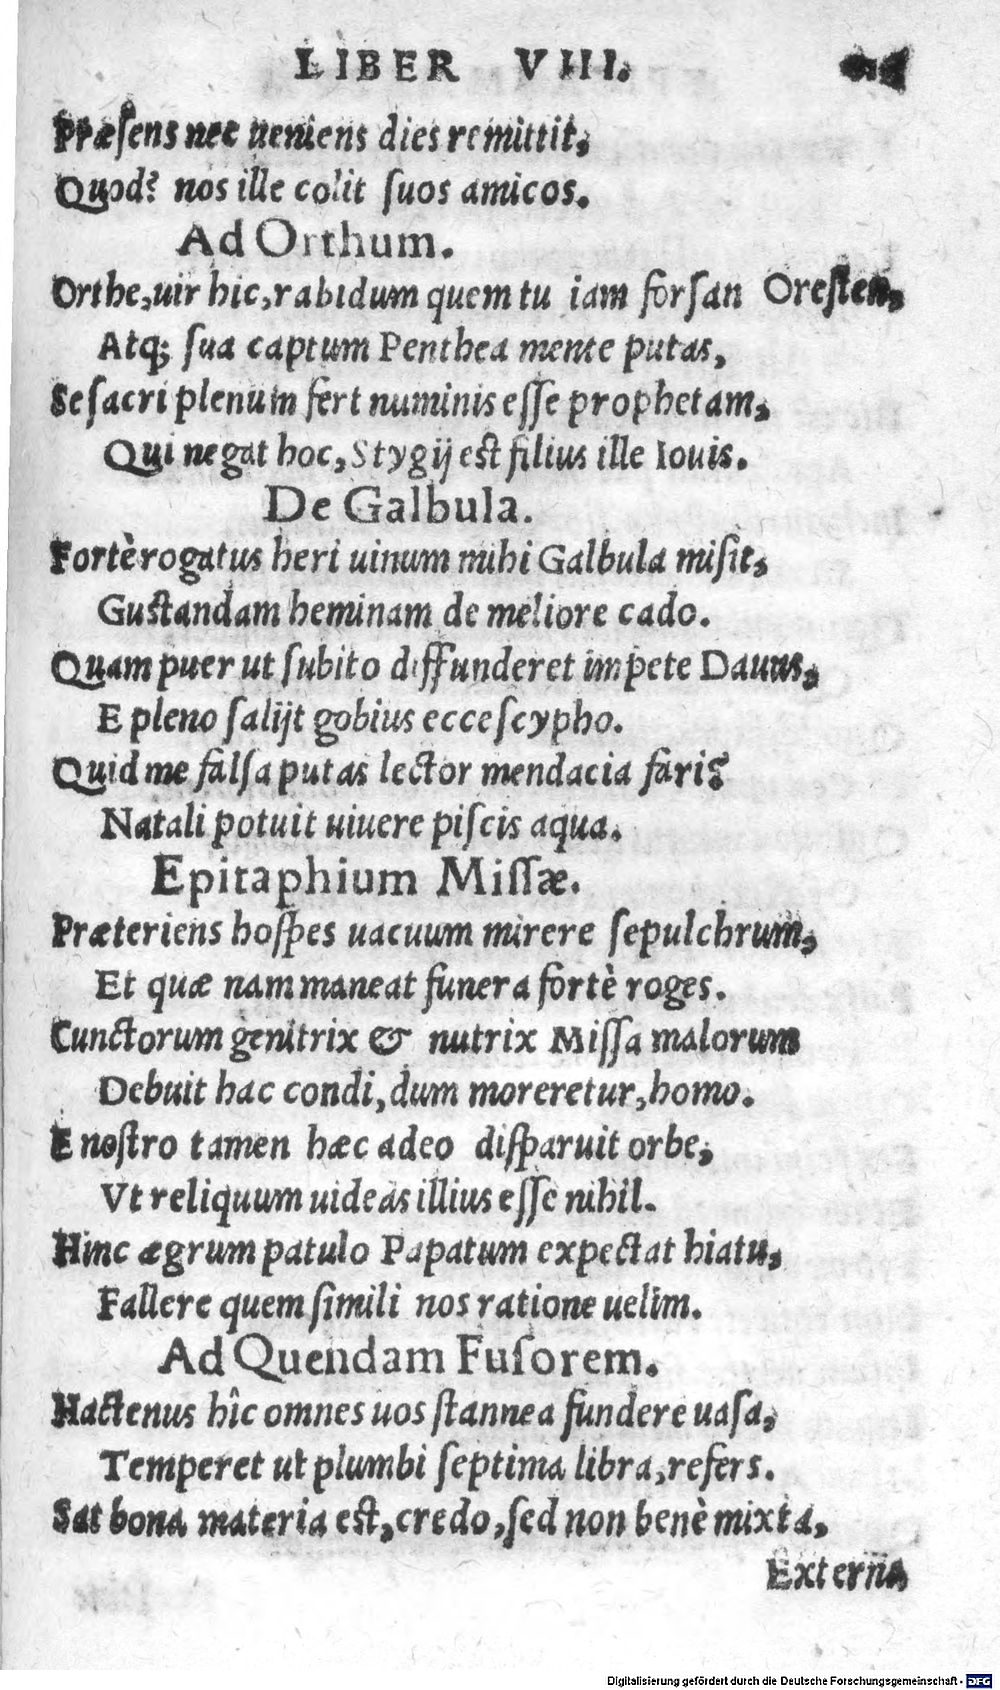 LIBER VIII.
Præſens nec ueniens dies remittit,
Quod? nos ille colit ſuos amicos.
Ad Orthum.
Orthe, uir hic, rabidum quem tu iam forſan Oreſten,
Atq; ſua captum Penthea mente putas,
Se ſacri plenum fert numinis eſſe prophetam,
Qui negat hoc, Stygij eſt filius ille Iouis.
De Galbula.
Fortè rogatus heri uinum mihi Galbula miſit,
Guſtandam heminam de meliore cado.
Quam puer ut ſubito diffunderet impete Dauus,
E pleno ſalijt gobius ecce ſcypho.
Quid me falſa putas lector mendacia fari?
Natali potuit uiuere piſcis aqua.
Epitaphium Miſſæ.
Præteriens hoſpes uacuum mirere ſepulchrum,
Et quæ nam maneat funera fortè roges.
Cunctorum genitrix & nutrix Miſſa malorum
Debuit hac condi, dum moreretur, homo.
E noſtro tamen hæc adeo diſparuit orbe,
Vt reliquum uideas illius eſſe nihil.
Hinc ægrum patulo Papatum expectat hiatu,
Fallere quem ſimili nos ratione uelim.
Ad Quendam Fuſorem.
Hactenus hîc omnes uos ſtannea fundere uaſa,
Temperet ut plumbi ſeptima libra, refers.
Sat bona materia eſt, credo, ſed non benè mixta,
Externa
Digitalisierung gefördert durch die Deutsche Forschungsgemeinschaft - DFG